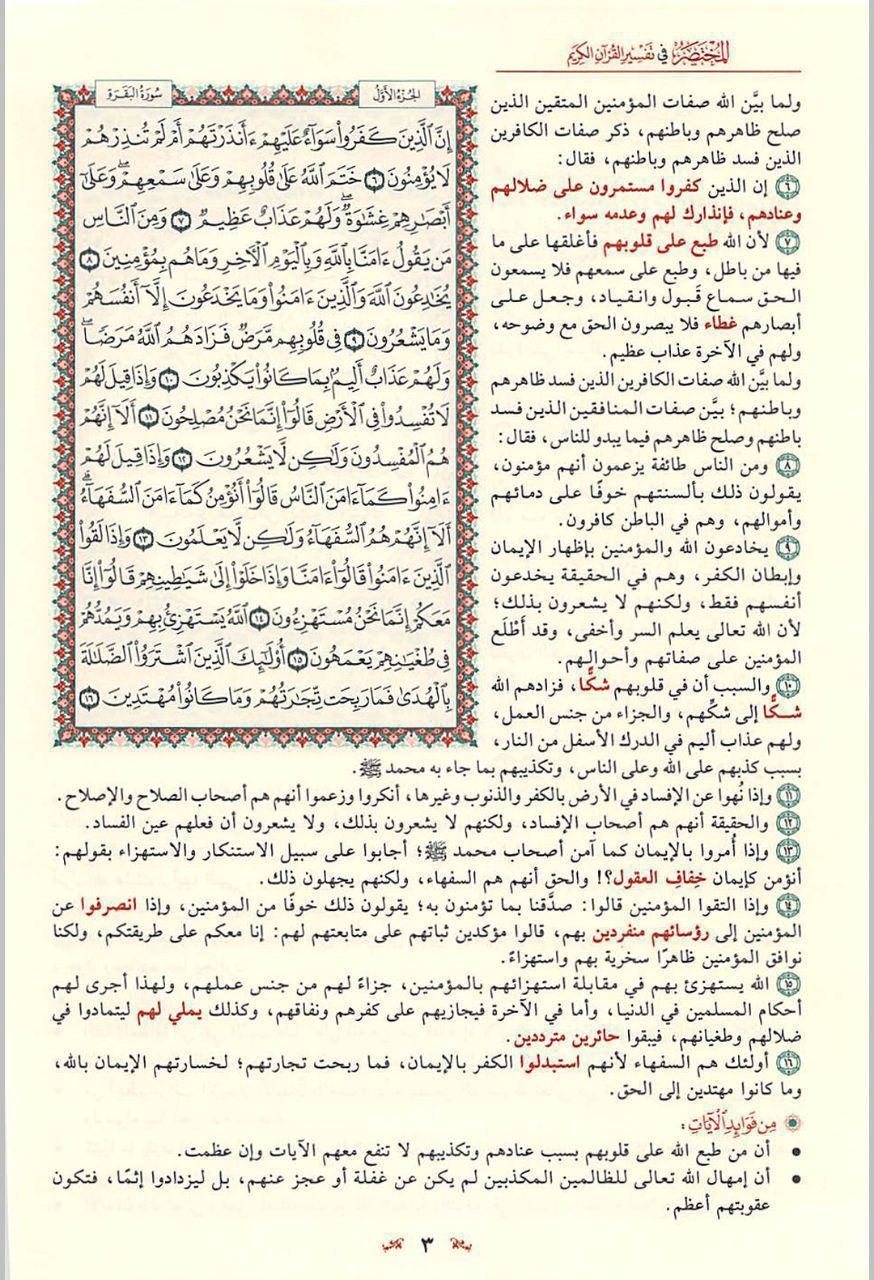 المختصر في تفسير القرآن الكريم
الجزء الأول
سورة البقرة
إِنَّ ٱلَّذِينَ كَفَرُوا۟ سَوَآءٌ عَلَيْهِمْ ءَأَنذَرْتَهُمْ أَمْ لَمْ تُنذِرْهُمْ
لَا يُؤْمِنُونَ ٦ خَتَمَ ٱللَّهُ عَلَىٰ قُلُوبِهِمْ وَعَلَىٰ سَمْعِهِمْۖ وَعَلَىٰٓ
أَبْصَٰرِهِمْ غِشَٰوَةٌۖ وَلَهُمْ عَذَابٌ عَظِيمٌ ٧ وَمِنَ ٱلنَّاسِ
مَن يَقُولُ ءَامَنَّا بِٱللَّهِ وَبِٱلْيَوْمِ ٱلْءَاخِرِ وَمَا هُم بِمُؤْمِنِينَ ٨
يُخَٰدِعُونَ ٱللَّهَ وَٱلَّذِينَ ءَامَنُوا۟ وَمَا يَخْدَعُونَ إِلَّآ أَنفُسَهُمْ
وَمَا يَشْعُرُونَ ٩ فِى قُلُوبِهِم مَّرَضٌ فَزَادَهُمُ ٱللَّهُ مَرَضًاۖ
وَلَهُمْ عَذَابٌ أَلِيمٌۢ بِمَا كَانُوا۟ يَكْذِبُونَ ١٠ وَإِذَا قِيلَ لَهُمْ
لَا تُفْسِدُوا۟ فِى ٱلْأَرْضِ قَالُوٓا۟ إِنَّمَا نَحْنُ مُصْلِحُونَ ١١ أَلَآ إِنَّهُمْ
هُمُ ٱلْمُفْسِدُونَ وَلَٰكِن لَّا يَشْعُرُونَ ١٢ وَإِذَا قِيلَ لَهُمْ
ءَامِنُوا۟ كَمَآ ءَامَنَ ٱلنَّاسُ قَالُوٓا۟ أَنُؤْمِنُ كَمَآ ءَامَنَ ٱلسُّفَهَآءُۗ
أَلَآ إِنَّهُمْ هُمُ ٱلسُّفَهَآءُ وَلَٰكِن لَّا يَعْلَمُونَ ١٣ وَإِذَا لَقُوا۟
ٱلَّذِينَ ءَامَنُوا۟ قَالُوٓا۟ ءَامَنَّا وَإِذَا خَلَوْا۟ إِلَىٰ شَيَٰطِينِهِمْ قَالُوٓا۟ إِنَّا
مَعَكُمْ إِنَّمَا نَحْنُ مُسْتَهْزِءُونَ ١٤ ٱللَّهُ يَسْتَهْزِئُ بِهِمْ وَيَمُدُّهُمْ
فِى طُغْيَٰنِهِمْ يَعْمَهُونَ ١٥ أُو۟لَٰٓئِكَ ٱلَّذِينَ ٱشْتَرَوُا۟ ٱلضَّلَٰلَةَ
بِٱلْهُدَىٰ فَمَا رَبِحَت تِّجَٰرَتُهُمْ وَمَا كَانُوا۟ مُهْتَدِينَ ١٦
ولما بيَّن الله صفات المؤمنين المتقين الذين
صلح ظاهرهم وباطنهم، ذكر صفات الكافرين
الذين فسد ظاهرهم وباطنهم، فقال:
٦ إن الذين كفروا مستمرون على ضلالهم
وعنادهم، فإنذارك لهم وعدمه سواء.
٧ لأن الله طبع على قلوبهم فأغلقها على ما
فيها من باطل، وطبع على سمعهم فلا يسمعون
الحق سماع قَبول وانقياد، وجعل على
أبصارهم غطاء فلا يبصرون الحق مع وضوحه،
ولهم في الآخرة عذاب عظيم.
ولما بيَّن الله صفات الكافرين الذين فسد ظاهرهم
وباطنهم؛ بيَّن صفات المنافقين الذين فسد
باطنهم وصلح ظاهرهم فيما يبدو للناس، فقال:
٨ ومن الناس طائفة يزعمون أنهم مؤمنون،
يقولون ذلك بألسنتهم خوفًا على دمائهم
وأموالهم، وهم في الباطن كافرون.
٩ يخادعون الله والمؤمنين بإظهار الإيمان
وإبطان الكفر، وهم في الحقيقة يخدعون
أنفسهم فقط، ولكنهم لا يشعرون بذلك؛
لأن الله تعالى يعلم السر وأخفى، وقد أَطْلَع
المؤمنين على صفاتهم وأحوالهم.
١٠ والسبب أن في قلوبهم شكًّا، فزادهم الله
شكًّا إلى شكِّهم، والجزاء من جنس العمل،
ولهم عذاب أليم في الدرك الأسفل من النار،
بسبب كذبهم على الله وعلى الناس، وتكذيبهم بما جاء به محمد ﷺ.
١١ وإذا نُهوا عن الإفساد في الأرض بالكفر والذنوب وغيرها، أنكروا وزعموا أنهم هم أصحاب الصلاح والإصلاح.
١٢ والحقيقة أنهم هم أصحاب الإفساد، ولكنهم لا يشعرون بذلك، ولا يشعرون أن فعلهم عين الفساد.
١٣ وإذا أُمروا بالإيمان كما آمن أصحاب محمد ﷺ؛ أجابوا على سبيل الاستنكار والاستهزاء بقولهم:
أنؤمن كإيمان خِفافِ العقول؟! والحق أنهم هم السفهاء، ولكنهم يجهلون ذلك.
١٤ وإذا التقوا المؤمنين قالوا: صدَّقنا بما تؤمنون به؛ يقولون ذلك خوفًا من المؤمنين، وإذا انصرفوا عن
المؤمنين إلى رؤسائهم منفردين بهم، قالوا مؤكدين ثباتهم على متابعتهم لهم: إنا معكم على طريقتكم، ولكنا
نوافق المؤمنين ظاهرًا سخرية بهم واستهزاءً.
١٥ الله يستهزئ بهم في مقابلة استهزائهم بالمؤمنين، جزاءً لهم من جنس عملهم، ولهذا أجرى لهم
أحكام المسلمين في الدنيا، وأما في الآخرة فيجازيهم على كفرهم ونفاقهم، وكذلك يملي لهم ليتمادوا في
ضلالهم وطغيانهم، فيبقوا حائرين مترددين.
١٦ أولئك هم السفهاء لأنهم استبدلوا الكفر بالإيمان، فما ربحت تجارتهم؛ لخسارتهم الإيمان بالله،
وما كانوا مهتدين إلى الحق.
مِن فَوَائِدِ الْآيَاتِ:
• أن من طبع الله على قلوبهم بسبب عنادهم وتكذيبهم لا تنفع معهم الآيات وإن عظمت.
• أن إمهال الله تعالى للظالمين المكذبين لم يكن عن غفلة أو عجز عنهم، بل ليزدادوا إثمًا، فتكون
عقوبتهم أعظم.
٣